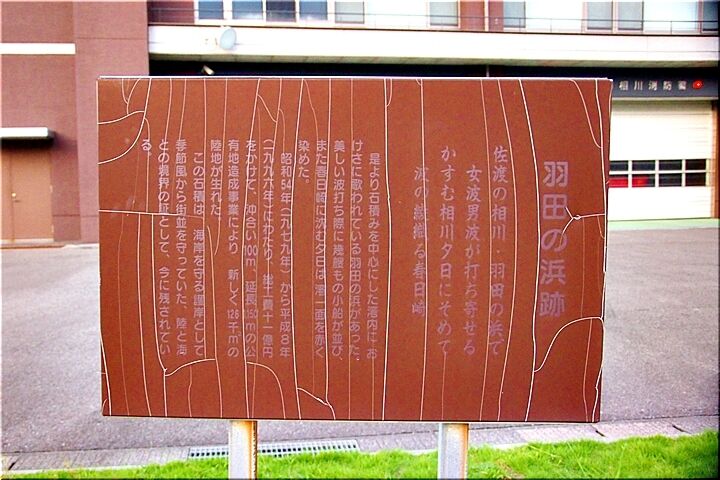 羽田の浜跡
佐渡の相川・羽田の浜で
女波男波が打ち寄せる
かすむ相川夕日にそめて
波の綾織る春日崎
是より石積みを中心にした湾内に お
けさに歌われている羽田の浜があった。
美しい波打ち際に幾艘もの小船が並び、
また春日崎に沈む夕日は 湾一面を赤く
染めた。
昭和54年(一九七九年)から平成8年
(一九九六年)にわたり、総工費十一億円
をかけて、沖合い100m、延長1,150mの公
有地造成事業により 新しく126千㎡の
陸地が生れた。
この石積は、海岸を守る護岸として
季節風から街並を守っていた、陸と海
との境界の証として、今に残されてい
る。
相川消防署